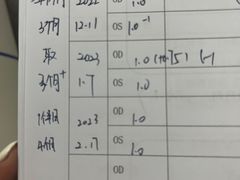 2022 OD 1.0
3个月 12.11 OS 1.0⁻¹
取 2023 OD 1.0 (+0.75) (-1
3个月+ 1.7 OS 1.0
2023 OD 1.0
2.17 OS 1.0
OD